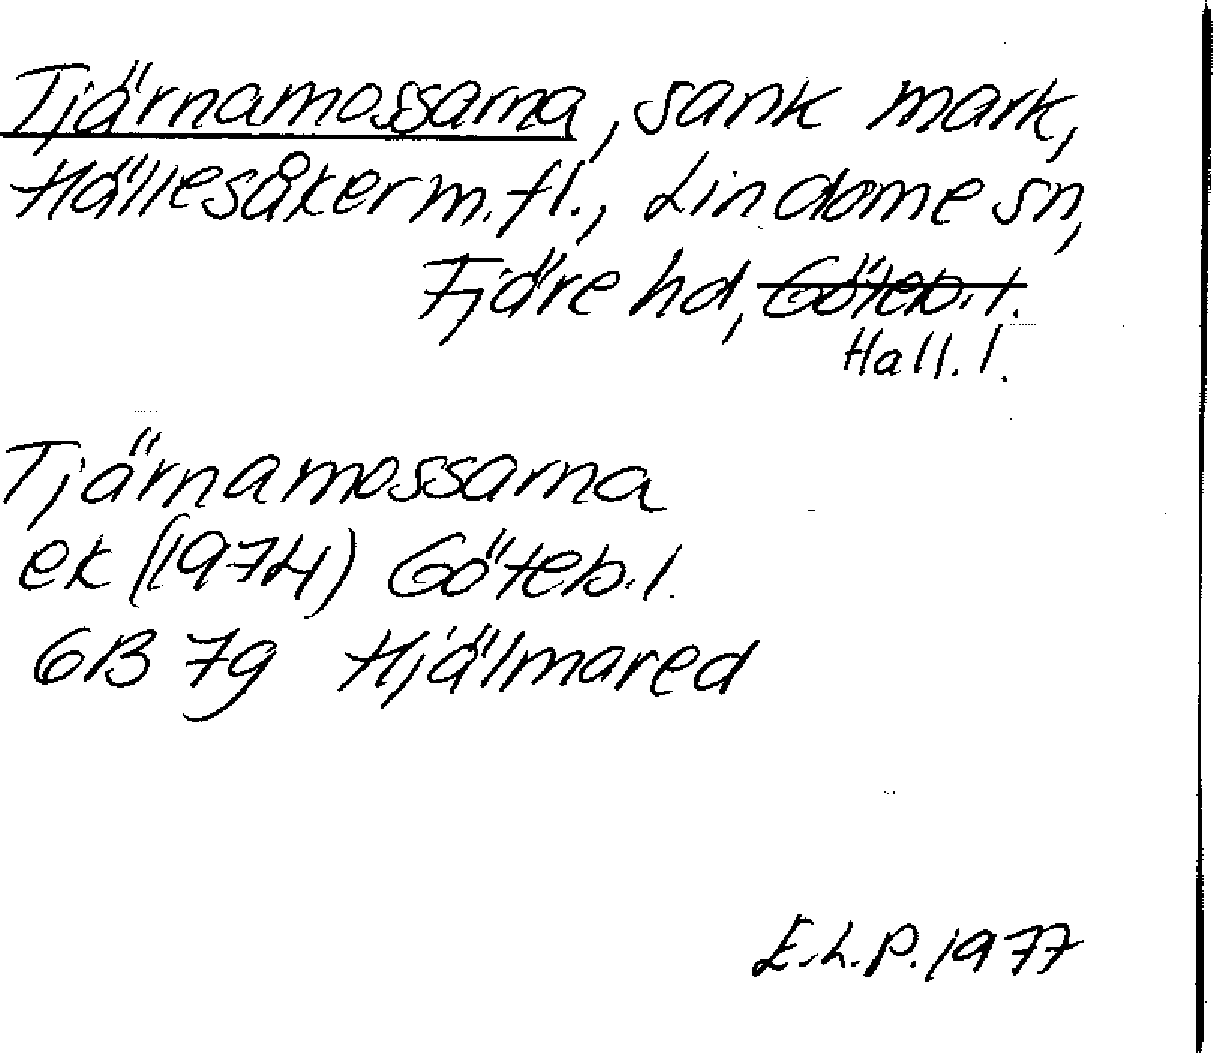 Tjärnamossarna, sank mark,
Hällesåker m.fl., Lindome sn,
Fjäre hd, Göteb. l.
Hall. l.
Tjärnamossarna
ek (1974) Göteb. l.
6B 7g Hjälmared
E.L.P. 1977